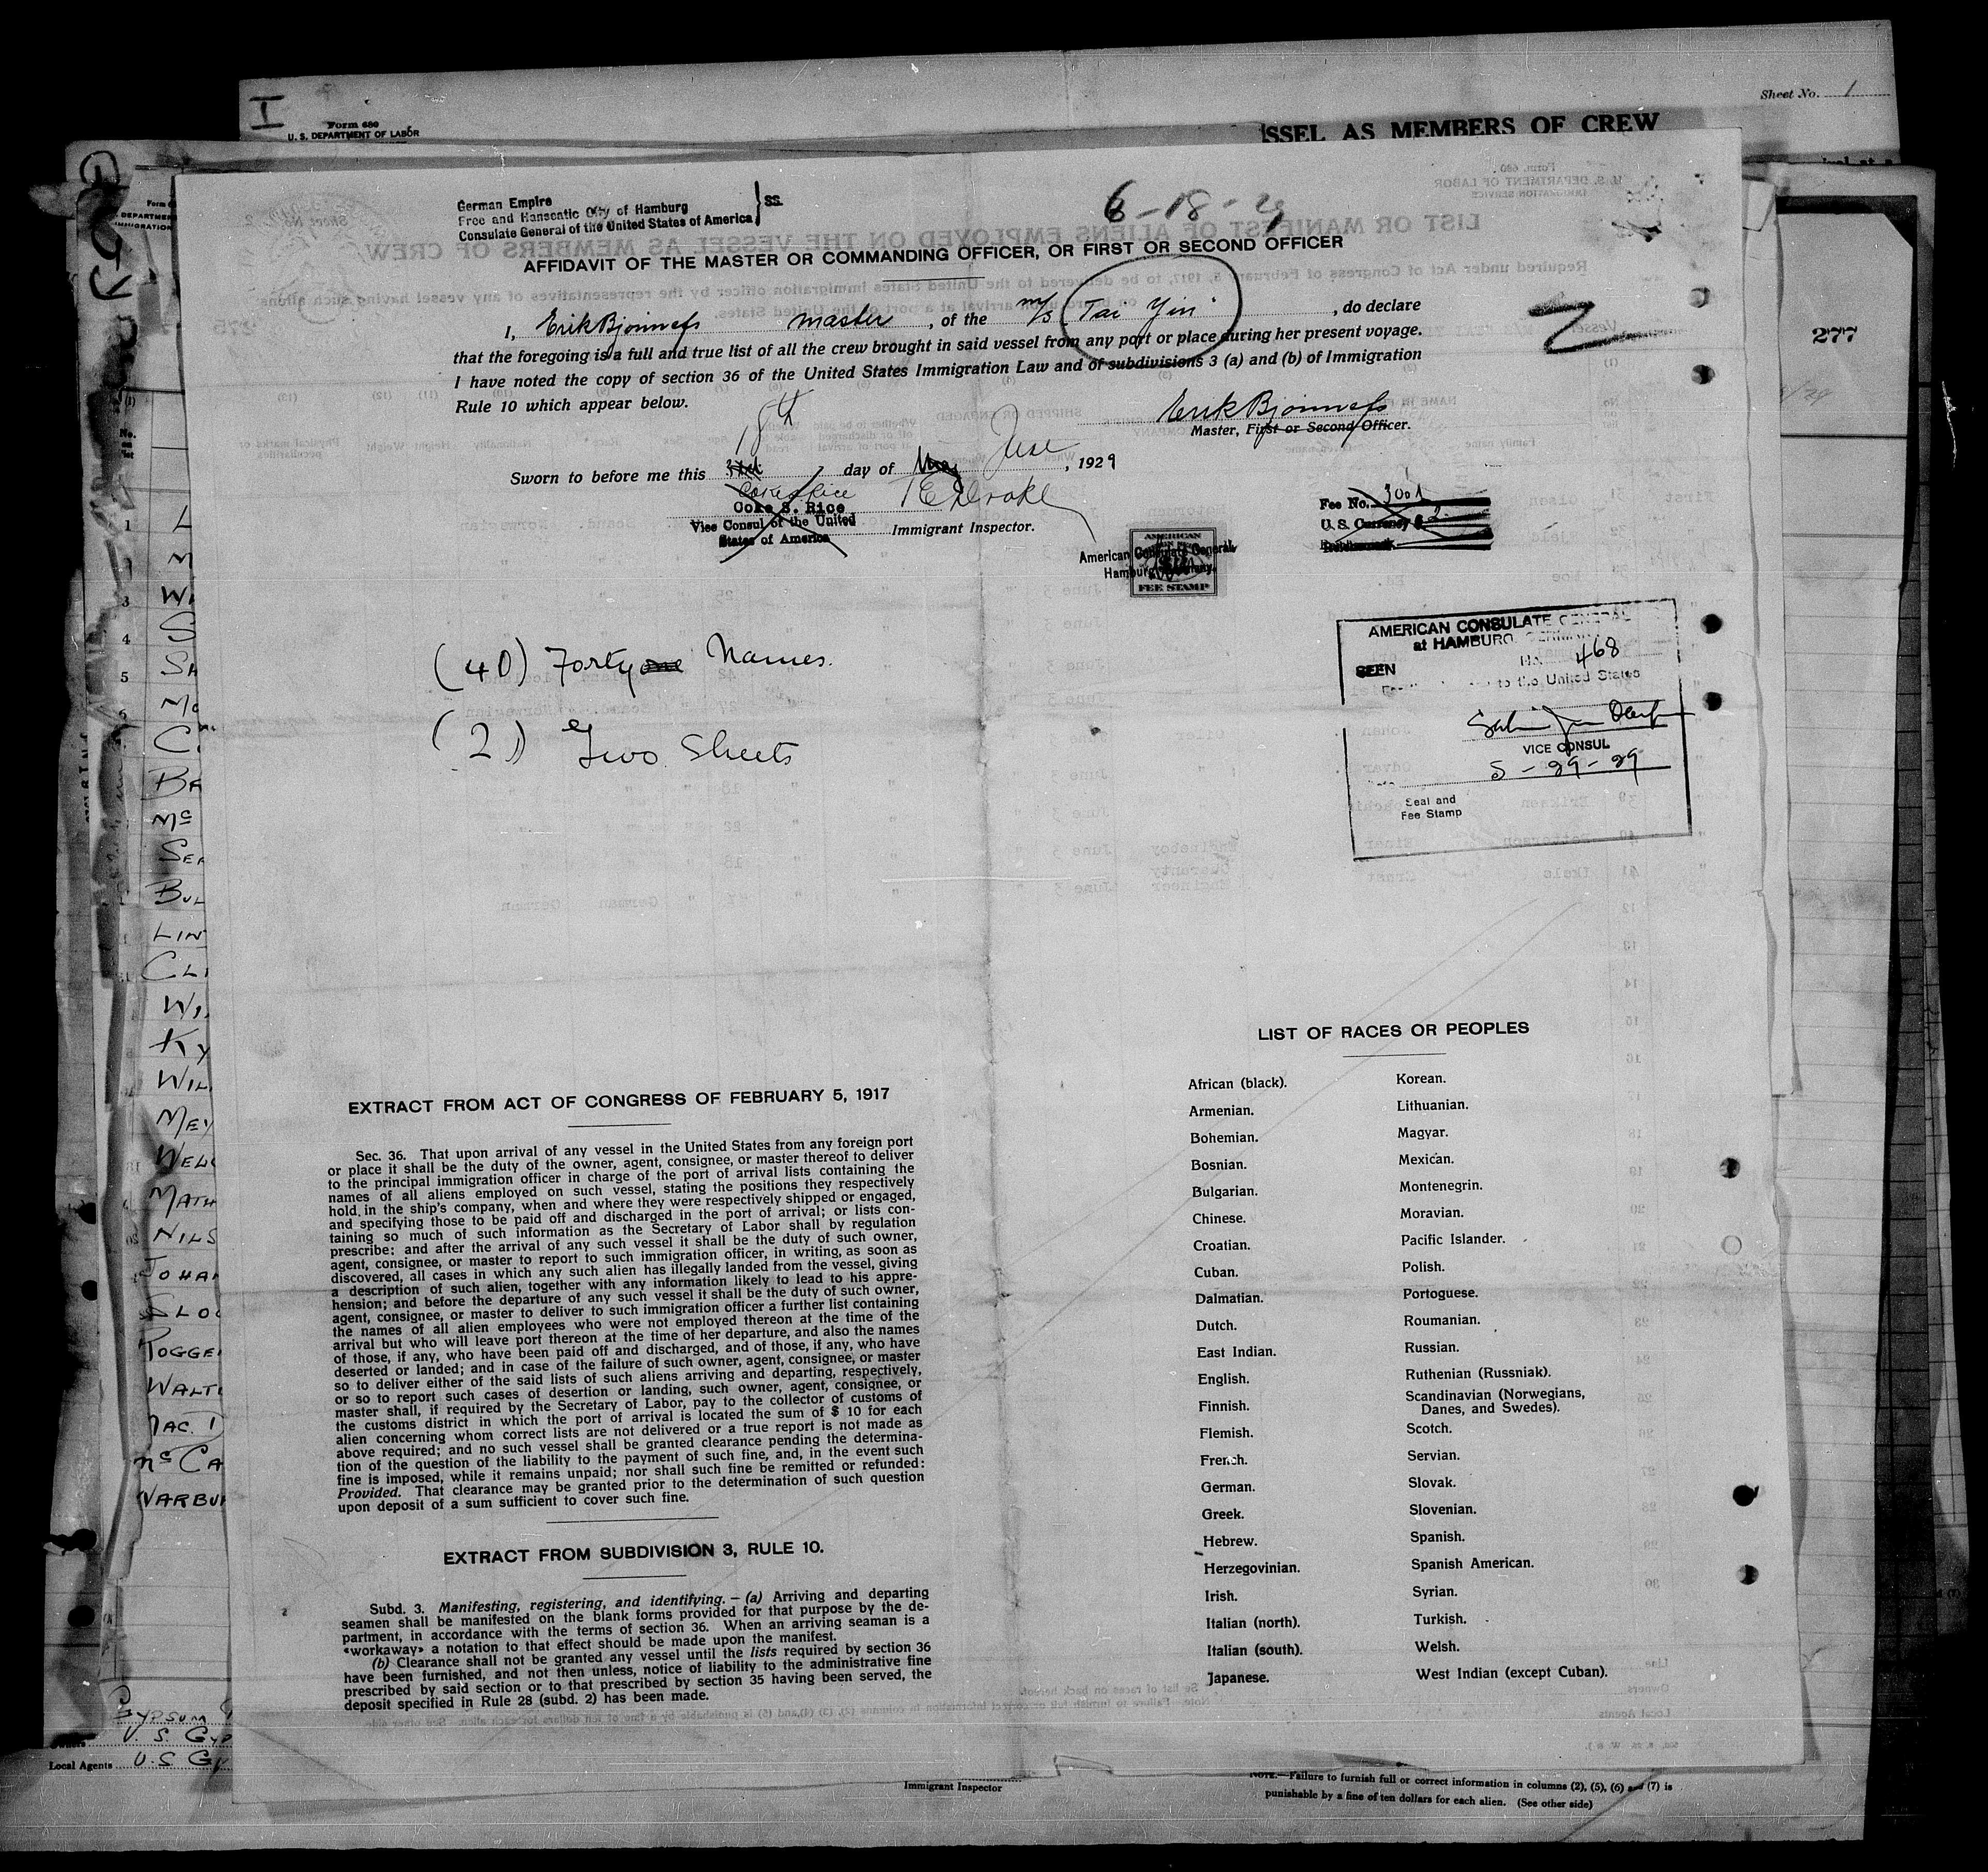 I
Form 680
U. S. DEPARTMENT OF LABOR
Sheet No. 1
SSEL AS MEMBERS OF CREW
277
German Empire
Free and Hanseatic City of Hamburg
Consulate General of the United States of America } SS.
6-18-29
AFFIDAVIT OF THE MASTER OR COMMANDING OFFICER, OR FIRST OR SECOND OFFICER
I, Erik Bjonness master, of the m/s "Tai Yin", do declare
that the foregoing is a full and true list of all the crew brought in said vessel from any port or place during her present voyage.
I have noted the copy of section 36 of the United States Immigration Law and of subdivisions 3 (a) and (b) of Immigration
Rule 10 which appear below.
Erik Bjonness
Master, First or Second Officer.
18th
Sworn to before me this 3rd day of May June, 1929
Coke S. Rice
Vice Consul of the United
States of America
Immigrant Inspector.
Fee No. 3001
U. S. Currency $ 2
American Consulate General,
Hamburg, Germany.
AMERICAN
FEE STAMP
AMERICAN CONSULATE GENERAL
at HAMBURG, GERMANY
No. 468
SEEN
to the United States
VICE CONSUL
5-29-29
Seal and
Fee Stamp
(40) Forty one Names.
(2) Two Sheets
EXTRACT FROM ACT OF CONGRESS OF FEBRUARY 5, 1917
Sec. 36. That upon arrival of any vessel in the United States from any foreign port
or place it shall be the duty of the owner, agent, consignee, or master thereof to deliver
to the principal immigration officer in charge of the port of arrival lists containing the
names of all aliens employed on such vessel, stating the positions they respectively
hold in the ship's company, when and where they were respectively shipped or engaged,
and specifying those to be paid off and discharged in the port of arrival; or lists con-
taining so much of such information as the Secretary of Labor shall by regulation
prescribe: and after the arrival of any such vessel it shall be the duty of such owner,
agent, consignee, or master to report to such immigration officer, in writing, as soon as
discovered, all cases in which any such alien has illegally landed from the vessel, giving
a description of such alien, together with any information likely to lead to his appre-
hension; and before the departure of any such vessel it shall be the duty of such owner,
agent, consignee, or master to deliver to such immigration officer a further list containing
the names of all alien employees who were not employed thereon at the time of the
arrival but who will leave port thereon at the time of her departure, and also the names
of those, if any, who have been paid off and discharged, and of those, if any, who have
deserted or landed; and in case of the failure of such owner, agent, consignee, or master
so to deliver either of the said lists of such aliens arriving and departing, respectively,
or so to report such cases of desertion or landing, such owner, agent, consignee, or
master shall, if required by the Secretary of Labor, pay to the collector of customs of
the customs district in which the port of arrival is located the sum of $ 10 for each
alien concerning whom correct lists are not delivered or a true report is not made as
above required; and no such vessel shall be granted clearance pending the determina-
tion of the question of the liability to the payment of such fine, and, in the event such
fine is imposed, while it remains unpaid; nor shall such fine be remitted or refunded:
Provided. That clearance may be granted prior to the determination of such question
upon deposit of a sum sufficient to cover such fine.
EXTRACT FROM SUBDIVISION 3, RULE 10.
Subd. 3. Manifesting, registering, and identifying. — (a) Arriving and departing
seamen shall be manifested on the blank forms provided for that purpose by the de-
partment, in accordance with the terms of section 36. When an arriving seaman is a
«workaway» a notation to that effect should be made upon the manifest.
(b) Clearance shall not be granted any vessel until the lists required by section 36
have been furnished, and not then unless, notice of liability to the administrative fine
prescribed by said section or to that prescribed by section 35 having been served, the
deposit specified in Rule 28 (subd. 2) has been made.
LIST OF RACES OR PEOPLES
African (black).
Armenian.
Bohemian.
Bosnian.
Bulgarian.
Chinese.
Croatian.
Cuban.
Dalmatian.
Dutch.
East Indian.
English.
Finnish.
Flemish.
French.
German.
Greek.
Hebrew.
Herzegovinian.
Irish.
Italian (north).
Italian (south).
Japanese.
Korean.
Lithuanian.
Magyar.
Mexican.
Montenegrin.
Moravian.
Pacific Islander.
Polish.
Portoguese.
Roumanian.
Russian.
Ruthenian (Russniak).
Scandinavian (Norwegians,
Danes, and Swedes).
Scotch.
Servian.
Slovak.
Slovenian.
Spanish.
Spanish American.
Syrian.
Turkish.
Welsh.
West Indian (except Cuban).
Local Agents U.S. G
Immigrant Inspector
NOTE.—Failure to furnish full or correct information in columns (2), (5), (6) and (7) is
punishable by a fine of ten dollars for each alien. (See other side)